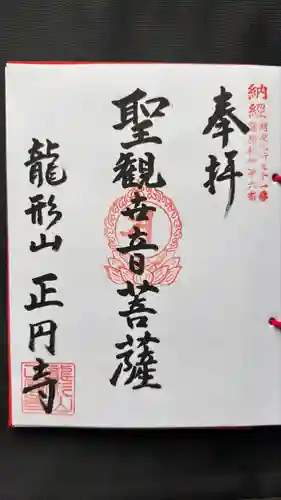 奉拝
聖観世音菩薩
龍形山 正円寺
納経